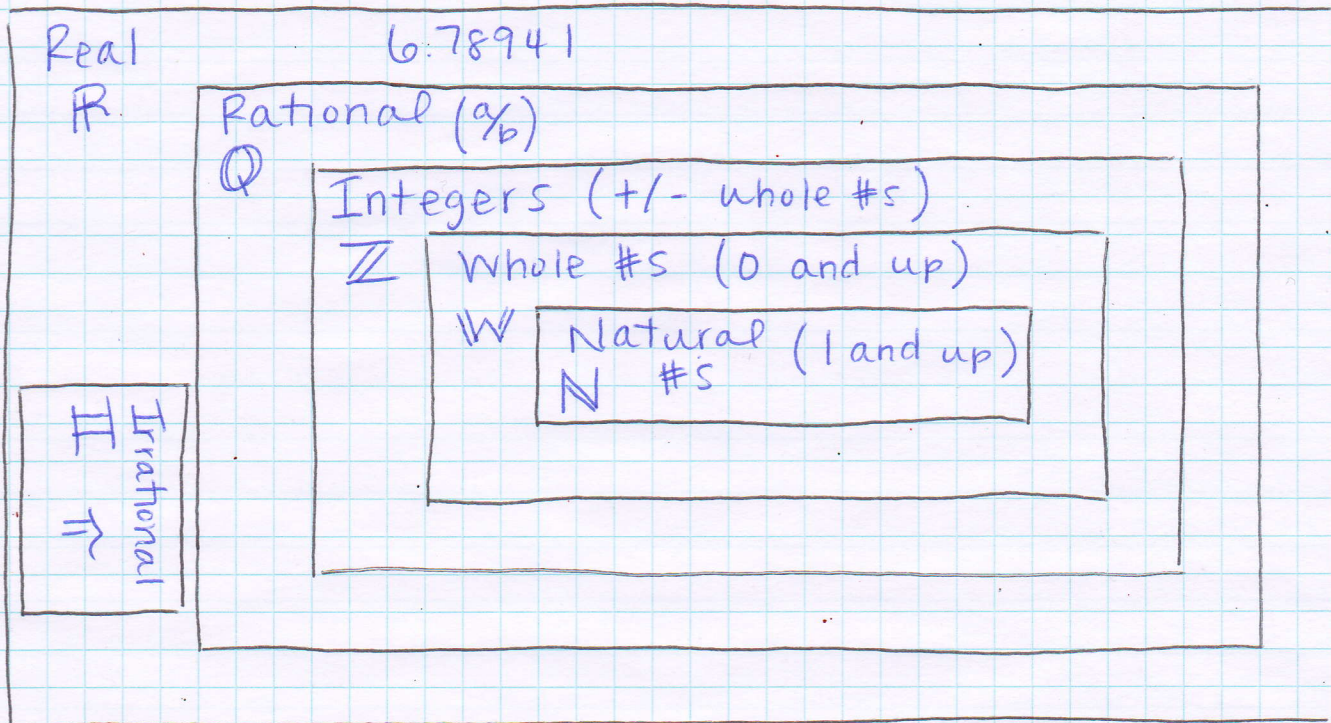 Real 6.78941
ℝ
Rational (a/b)
ℚ
Integers (+/- whole #s)
ℤ
Whole #s (0 and up)
𝕎
Natural (1 and up)
#s
ℕ
Irrational
𝕀
π